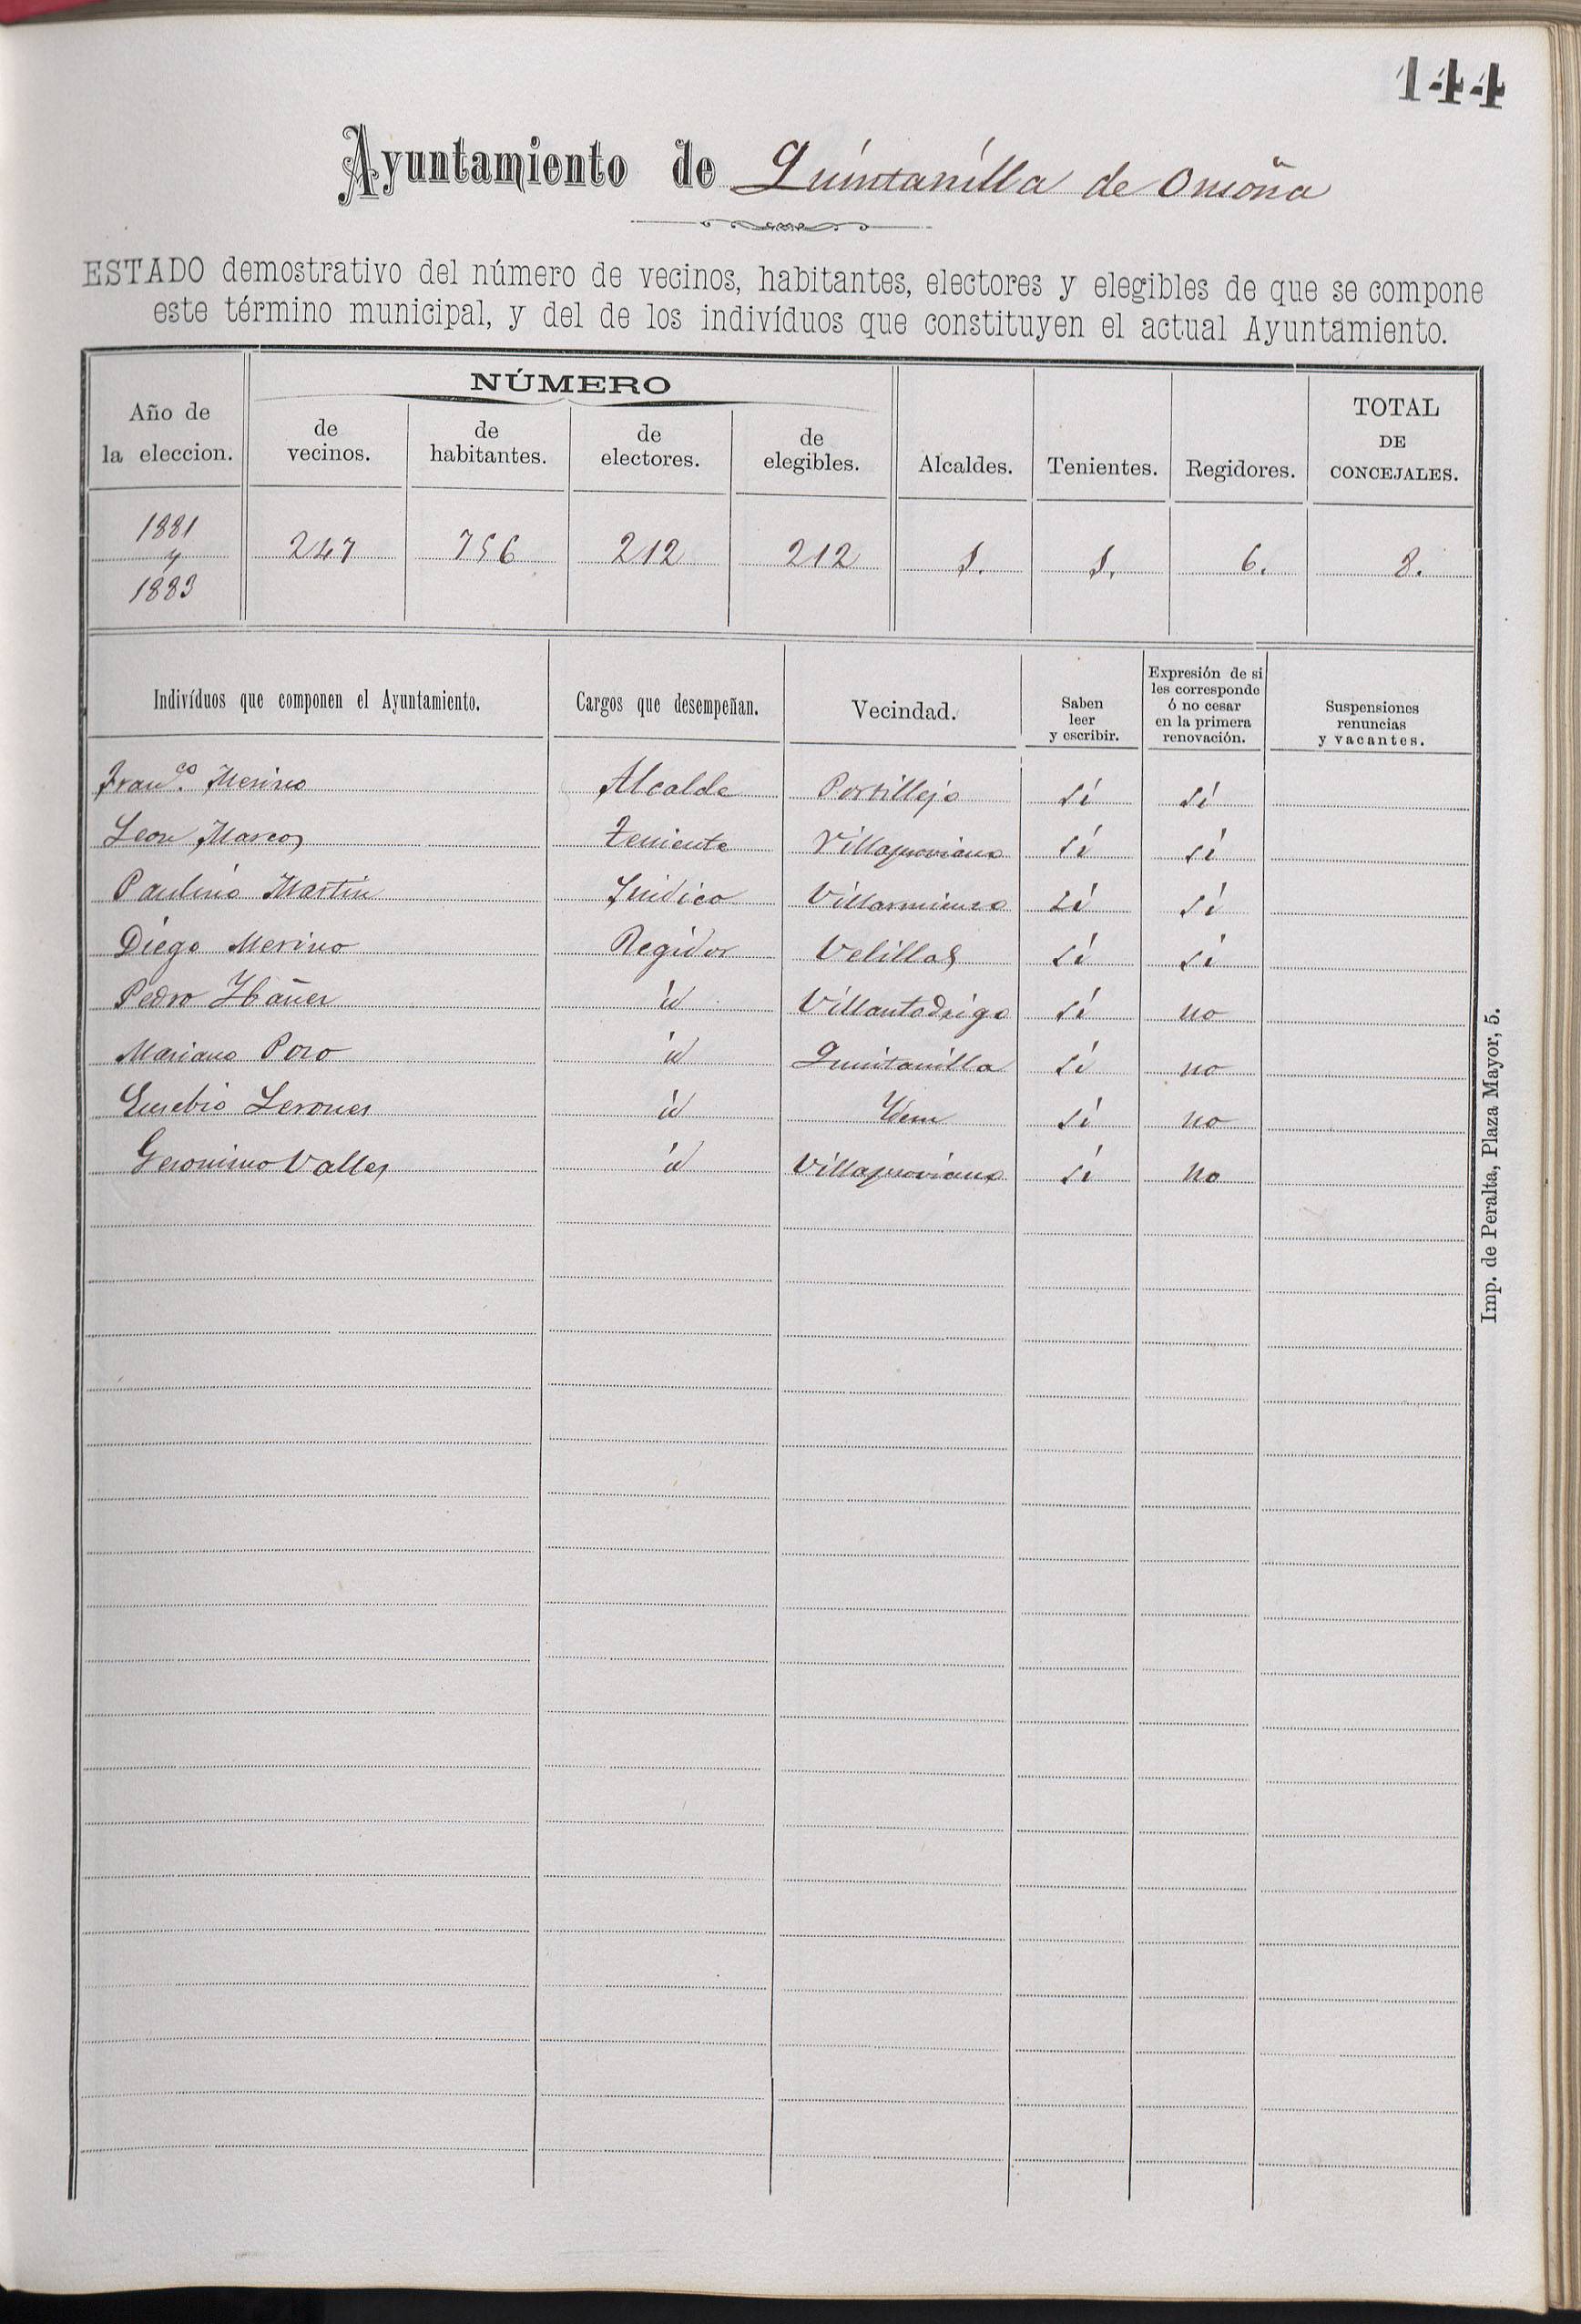 144
Ayuntamiento de Quintanilla de Onsoña
ESTADO demostrativo del número de vecinos, habitantes, electores y elegibles de que se compone
este término municipal, y del de los indivíduos que constituyen el actual Ayuntamiento.
Año de la eleccion. NÚMERO de vecinos. de habitantes. de electores. de elegibles. Alcaldes. Tenientes. Regidores. TOTAL DE CONCEJALES.
1881 y 1883 247 756 212 212 1. 1. 6. 8.
Indivíduos que componen el Ayuntamiento. Cargos que desempeñan. Vecindad. Saben leer y escribir. Expresión de si les corresponde ó no cesar en la primera renovación. Suspensiones renuncias y vacantes.
Franco. Merino Alcalde Portillejo Sí Sí
Leon Marcos Teniente Villaproviano Sí Sí
Paulino Martin Sindico Villarmienzo Sí Sí
Diego Merino Regidor Velillas Sí Sí
Pedro Ibañez id Villantodrigo Sí no
Mariano Pozo id Quintanilla Sí no
Eusebio Lerones id Ydem Sí no
Geronimo Valles id Villaproviano Sí no
Imp. de Peralta, Plaza Mayor, 5.